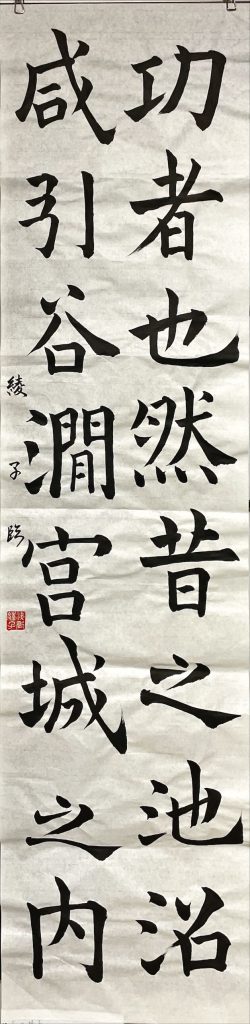 功者也然昔之池沼
咸引谷澗宮城之内
綾子臨